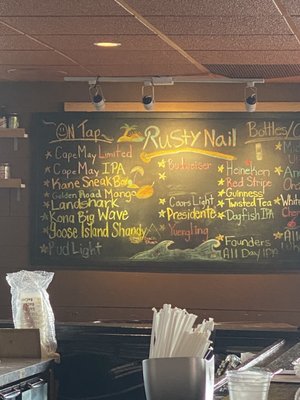 On Tap
Cape May Limited
Cape May IPA
Kane Sneak Box
Golden Road Mango
Landshark
Kona Big Wave
Goose Island Shandy
Bud Light
Rusty Nail
Budweiser
Coors Light
Presidente
Yuengling
Bottles/
Heineken
Red Stripe
Guinness
Twisted Tea
Dogfish IPA
Founders
All Day IPA